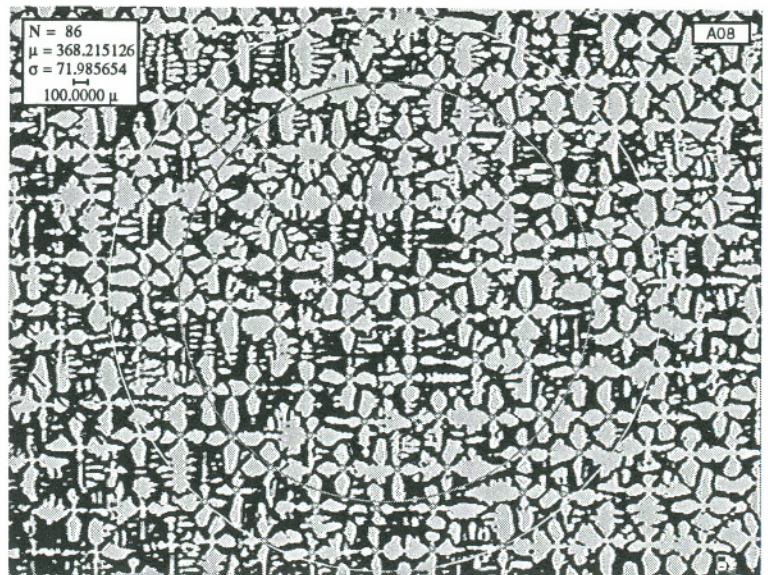 N = 86
μ = 368.215126
σ = 71.985654
100.0000 μ
A08